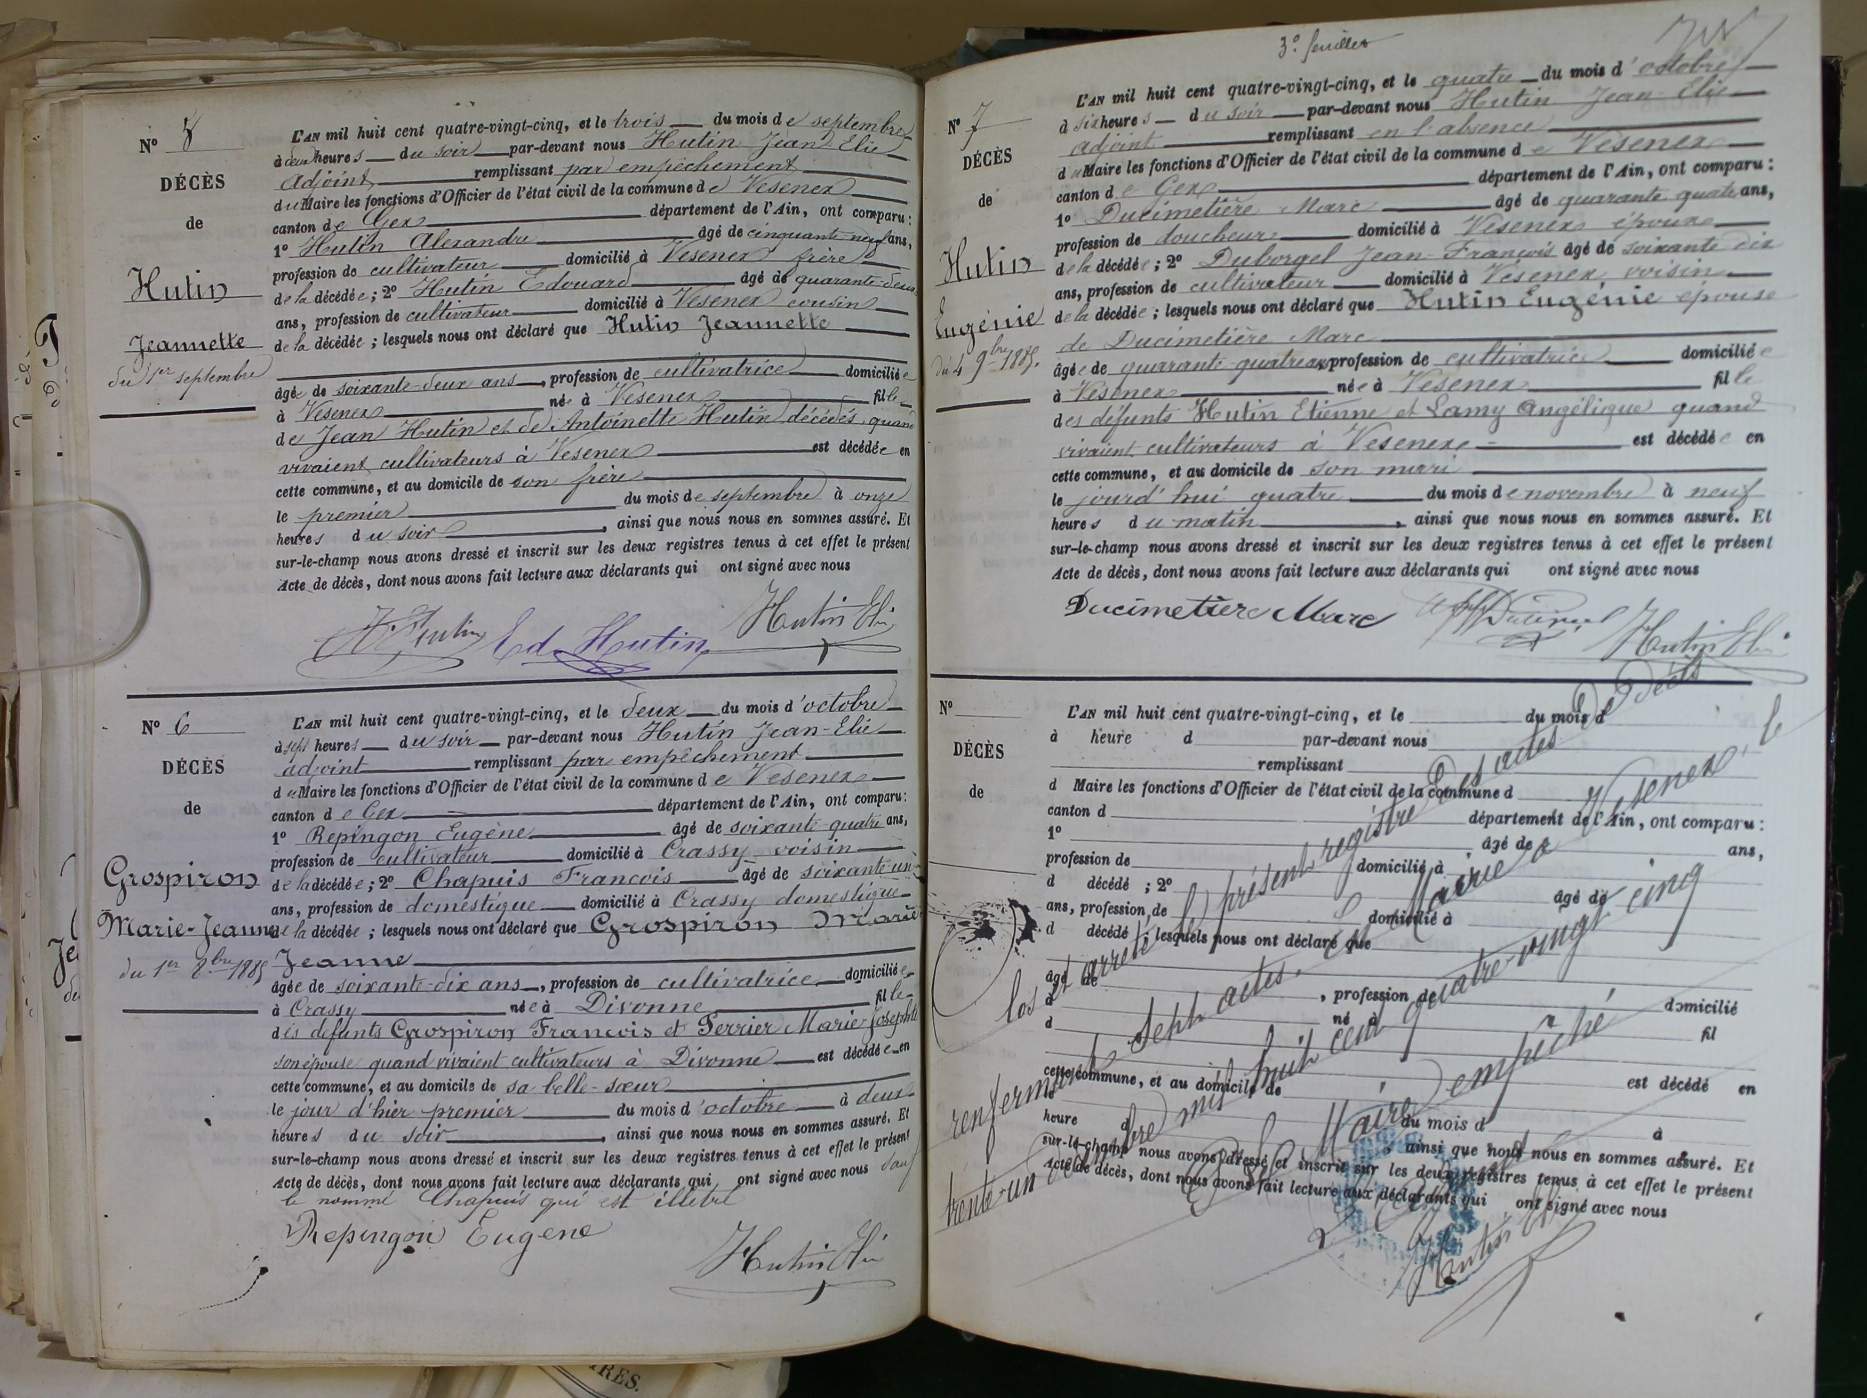 N° 8
DÉCÈS
de
Hutin
Jeannette
du 1er septembre
L'AN mil huit cent quatre-vingt-cinq, et le trois du mois de septembre
à deux heures du soir par-devant nous Hutin Jean Elie
adjoint remplissant par empêchement
du Maire les fonctions d'Officier de l'état civil de la commune de Vesenex
canton de Gex département de l'Ain, ont comparu :
1° Hutin Alexandre âgé de cinquante-neuf ans,
profession de cultivateur domicilié à Vesenex frère
de la décédée ; 2° Hutin Edouard âgé de quarante-deux
ans, profession de cultivateur domicilié à Vesenex cousin
de la décédée ; lesquels nous ont déclaré que Hutin Jeannette
âgée de soixante-deux ans, profession de cultivatrice domiciliée
à Vesenex née à Vesenex fille
de Jean Hutin et de Antoinette Hutin décédés, quand
vivaient cultivateurs à Vesenex est décédée en
cette commune, et au domicile de son frère
le premier du mois de septembre à onze
heures du soir, ainsi que nous nous en sommes assuré. Et
sur-le-champ nous avons dressé et inscrit sur les deux registres tenus à cet effet le présent
Acte de décès, dont nous avons fait lecture aux déclarants qui ont signé avec nous
Hutin Ed. Hutin Hutin Elie
N° 6
DÉCÈS
de
Grospiron
Marie-Jeanne
du 1er 8bre 1885
L'AN mil huit cent quatre-vingt-cinq, et le deux du mois d'octobre
à sept heures du soir par-devant nous Hutin Jean-Elie
adjoint remplissant par empêchement
du Maire les fonctions d'Officier de l'état civil de la commune de Vesenex
canton de Gex département de l'Ain, ont comparu :
1° Repingon Eugène âgé de soixante-quatre ans,
profession de cultivateur domicilié à Crassy voisin
de la décédée ; 2° Chapuis François âgé de soixante-un
ans, profession de domestique domicilié à Crassy domestique
de la décédée ; lesquels nous ont déclaré que Grospiron Marie
Jeanne
âgée de soixante-dix ans, profession de cultivatrice domiciliée
à Crassy née à Divonne fille
des défunts Grospiron François et Perrier Marie-Josephte
son épouse quand vivaient cultivateurs à Divonne est décédée en
cette commune, et au domicile de sa belle-sœur
le jour d'hier premier du mois d'octobre à deux
heures du soir, ainsi que nous nous en sommes assuré. Et
sur-le-champ nous avons dressé et inscrit sur les deux registres tenus à cet effet le présent
Acte de décès, dont nous avons fait lecture aux déclarants qui ont signé avec nous sauf
le nommé Chapuis qui est illetré
Repingon Eugene Hutin Elie
3e feuillet
N° 7
DÉCÈS
de
Hutin
Eugénie
du 4 9bre 1885.
L'AN mil huit cent quatre-vingt-cinq, et le quatre du mois d'octobre
à six heures du soir par-devant nous Hutin Jean-Elie
adjoint remplissant en l'absence
du Maire les fonctions d'Officier de l'état civil de la commune de Vesenex
canton de Gex département de l'Ain, ont comparu :
1° Ducimetière Marc âgé de quarante-quatre ans,
profession de doucheur domicilié à Vesenex époux
de la décédée ; 2° Duborgel Jean-François âgé de soixante dix
ans, profession de cultivateur domicilié à Vesenex voisin
de la décédée ; lesquels nous ont déclaré que Hutin Eugénie épouse
de Ducimetière Marc
âgée de quarante-quatre ans, profession de cultivatrice domiciliée
à Vesenex née à Vesenex fille
des défunts Hutin Etienne et Lamy Angélique quand
vivaient cultivateurs à Vesenex est décédée en
cette commune, et au domicile de son mari
le jourd'hui quatre du mois de novembre à neuf
heures du matin, ainsi que nous nous en sommes assuré. Et
sur-le-champ nous avons dressé et inscrit sur les deux registres tenus à cet effet le présent
Acte de décès, dont nous avons fait lecture aux déclarants qui ont signé avec nous
Ducimetiere Marc Hutin Elie
N°
DÉCÈS
de
L'AN mil huit cent quatre-vingt-cinq, et le du mois d
à heure d par-devant nous
remplissant
d Maire les fonctions d'Officier de l'état civil de la commune d
canton d département de l'Ain, ont comparu :
1° âgé de ans,
profession de domicilié à
d décédé ; 2° âgé de
ans, profession de domicilié à
d décédé ; lesquels nous ont déclaré que
âgé de, profession de domicilié
à né à fil
d
est décédé en
cette commune, et au domicile de
le du mois d à
heure d ainsi que nous nous en sommes assuré. Et
sur-le-champ nous avons dressé et inscrit sur les deux registres tenus à cet effet le présent
Acte de décès, dont nous avons fait lecture aux déclarants qui ont signé avec nous
Clos et arrêté le présent registre des actes de Décès
renfermant sept actes. En Mairie à Vesenex, le
trente-un décembre mil huit cent quatre-vingt cinq
P. le Maire empêché
L'adjoint
Hutin Elie
IRES.